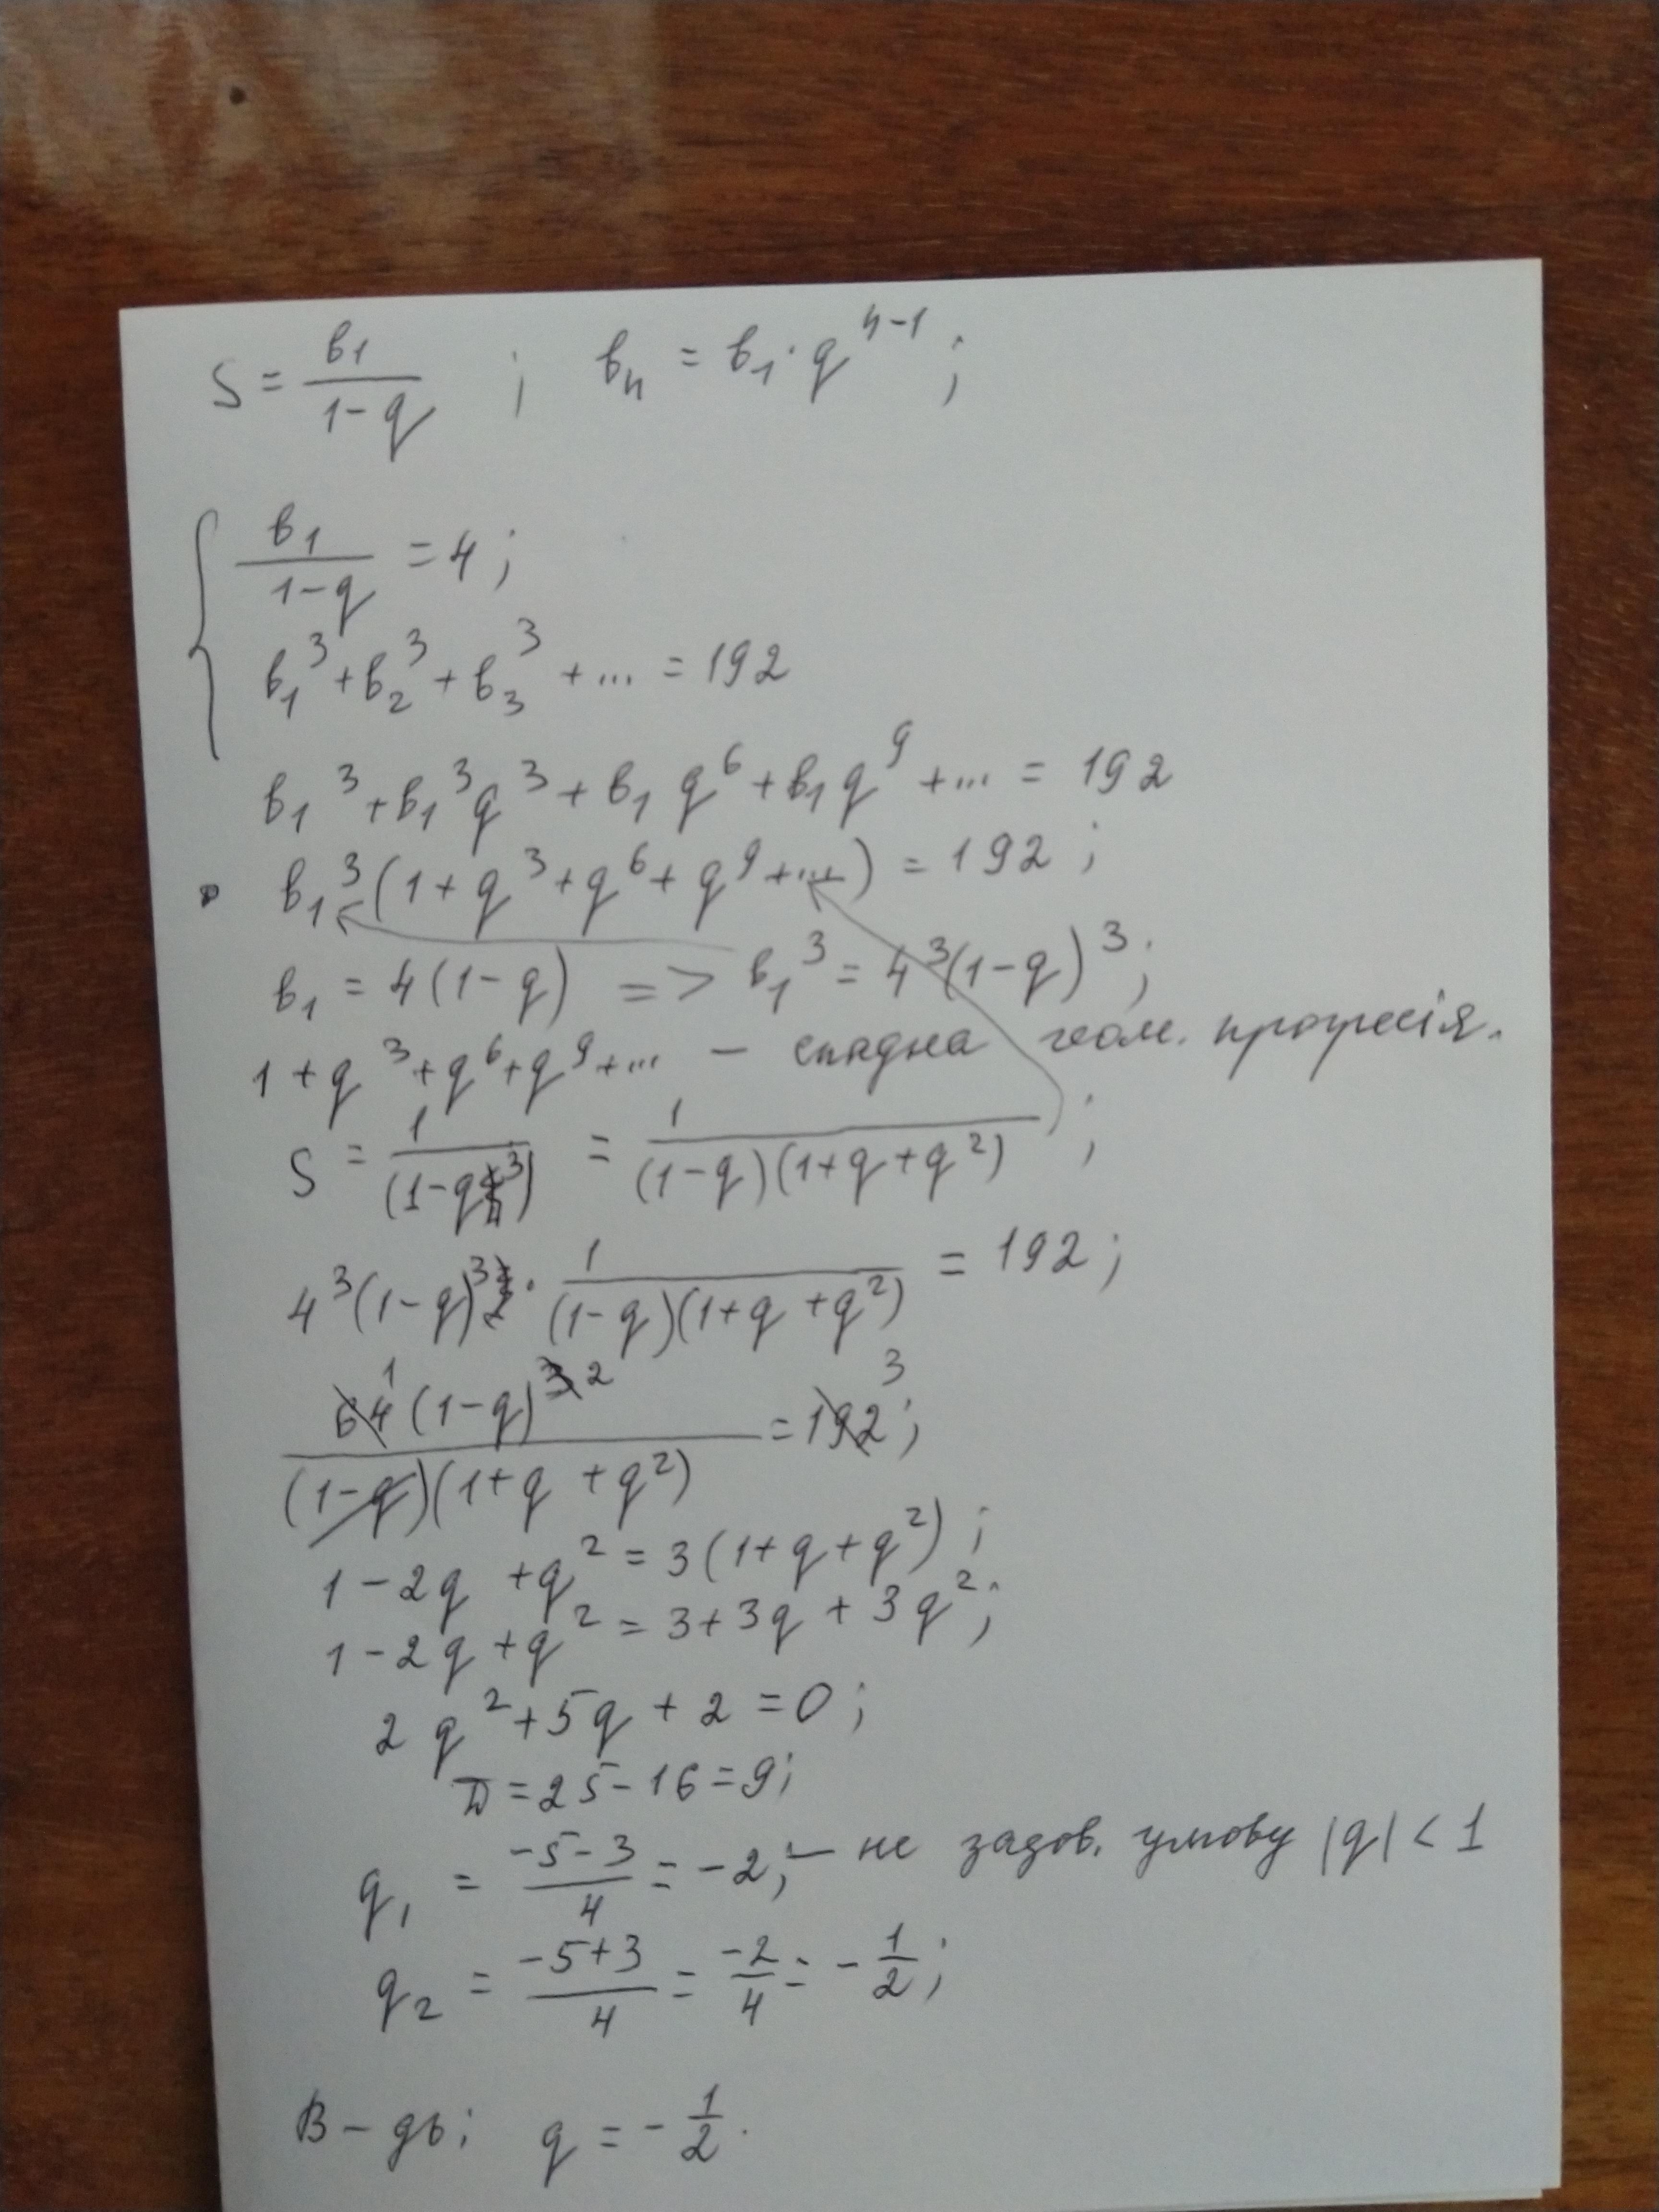 S = b₁/(1-q) ; bₙ = b₁·q^(n-1) ;
{ b₁/(1-q) = 4 ;
b₁³ + b₂³ + b₃³ + ... = 192
b₁³ + b₁³q³ + b₁q⁶ + b₁q⁹ + ... = 192
b₁³(1 + q³ + q⁶ + q⁹ + ...) = 192 ;
b₁ = 4(1-q) => b₁³ = 4³(1-q)³ ;
1 + q³ + q⁶ + q⁹ + ... — спадна геом. прогресія.
S = 1/(1-q³) = 1/((1-q)(1+q+q²)) ;
4³(1-q)³ · 1/((1-q)(1+q+q²)) = 192 ;
64 1 (1-q)³ 2 / ((1-q)(1+q+q²)) = 192 3 ;
1 - 2q + q² = 3(1+q+q²) ;
1 - 2q + q² = 3 + 3q + 3q² ;
2q² + 5q + 2 = 0 ;
D = 25 - 16 = 9 ;
q₁ = (-5-3)/4 = -2 ; — не задов. умову |q| < 1
q₂ = (-5+3)/4 = -2/4 = -1/2 ;
В-дь: q = -1/2 .